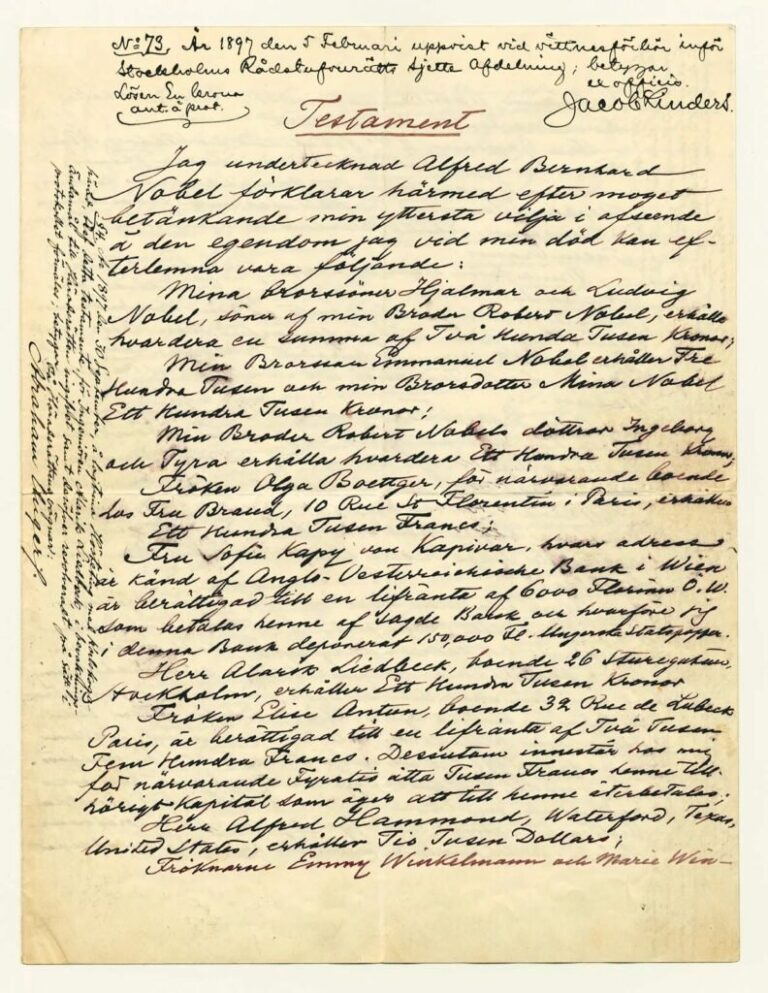 No 73. År 1897 den 5 Februari uppvist vid vittnesförhör inför
Stockholms Rådstufvurätts Sjette Afdelning; betygar
ex officio.
Lösen En krona
ant. å prot.
Jacob Linders.
Testament
Jag undertecknad Alfred Bernhard
Nobel förklarar härmed efter moget
betänkande min yttersta vilja i afseende
å den egendom jag vid min död kan ef-
terlemna vara följande:
Mina Brorssöner Hjalmar och Ludvig
Nobel, söner af min Broder Robert Nobel, erhålla
hvardera en summa af Två Hundra Tusen Kronor;
Min Brorsson Emmanuel Nobel erhåller Tre
Hundra Tusen och min Brorsdotter Mina Nobel
Ett Hundra Tusen Kronor;
Min Broder Robert Nobels döttrar Ingeborg
och Tyra erhålla hvardera Ett Hundra Tusen Kronor;
Fröken Olga Boettger, för närvarande boende
hos Fru Brand, 10 Rue St Florentin i Paris, erhåller
Ett Hundra Tusen Francs;
Fru Sofie Kapy von Kapivar, hvars adress
är känd af Anglo-Oesterreichische Bank i Wien
är berättigad till en lifränta af 6000 Florins Ö.W.
som betalas henne af sagde Bank och hvarföre jag
i denna Bank deponerat 150,000 Fl. i Ungerska Statspapper.
Herr Alarik Liedbeck, boende 26 Sturegatan,
Stockholm, erhåller Ett Hundra Tusen Kronor
Fröken Elise Antun, boende 32 Rue de Lubeck
Paris, är berättigad till en lifränta af Två Tusen
Fem Hundra Francs. Dessutom innestår hos mig
för närvarande Fyratio åtta Tusen Francs henne till-
hörigt Kapital som äger att till henne återbetalas;
Herr Alfred Hammond, Waterford, Texas,
United States, erhåller Tio Tusen Dollars;
Fröknarne Emmy Winkelmann och Marie Win-
År 1897 den 30 September, å lagtima Hösteting med Karlskoga
härads
Abraham Unger